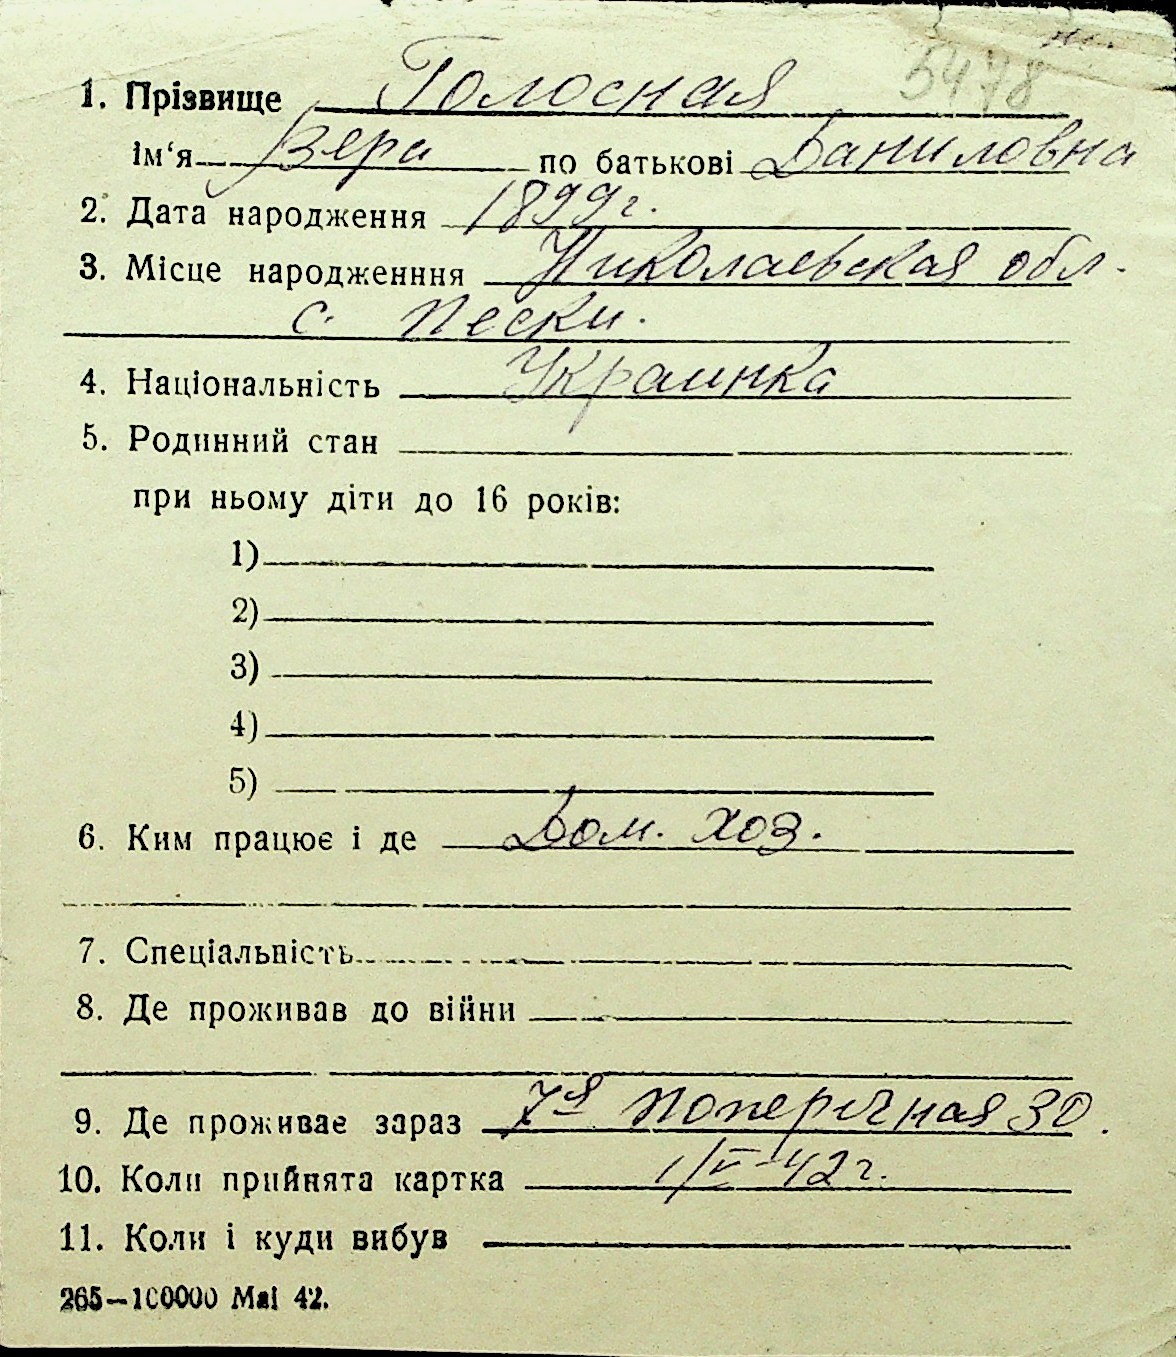 5478
1. Прізвище Голосная
ім‘я Вера по батькові Даниловна
2. Дата народження 1899г.
3. Місце народженння Николаевская обл.
с. Пески.
4. Національність Украинка
5. Родинний стан
при ньому діти до 16 років:
1)
2)
3)
4)
5)
6. Ким працює і де Дом. хоз.
7. Спеціальність
8. Де проживав до війни
9. Де проживає зараз 7я Поперечная 30.
10. Коли прийнята картка 1/V-42г.
11. Коли і куди вибув
265—100000 Mai 42.